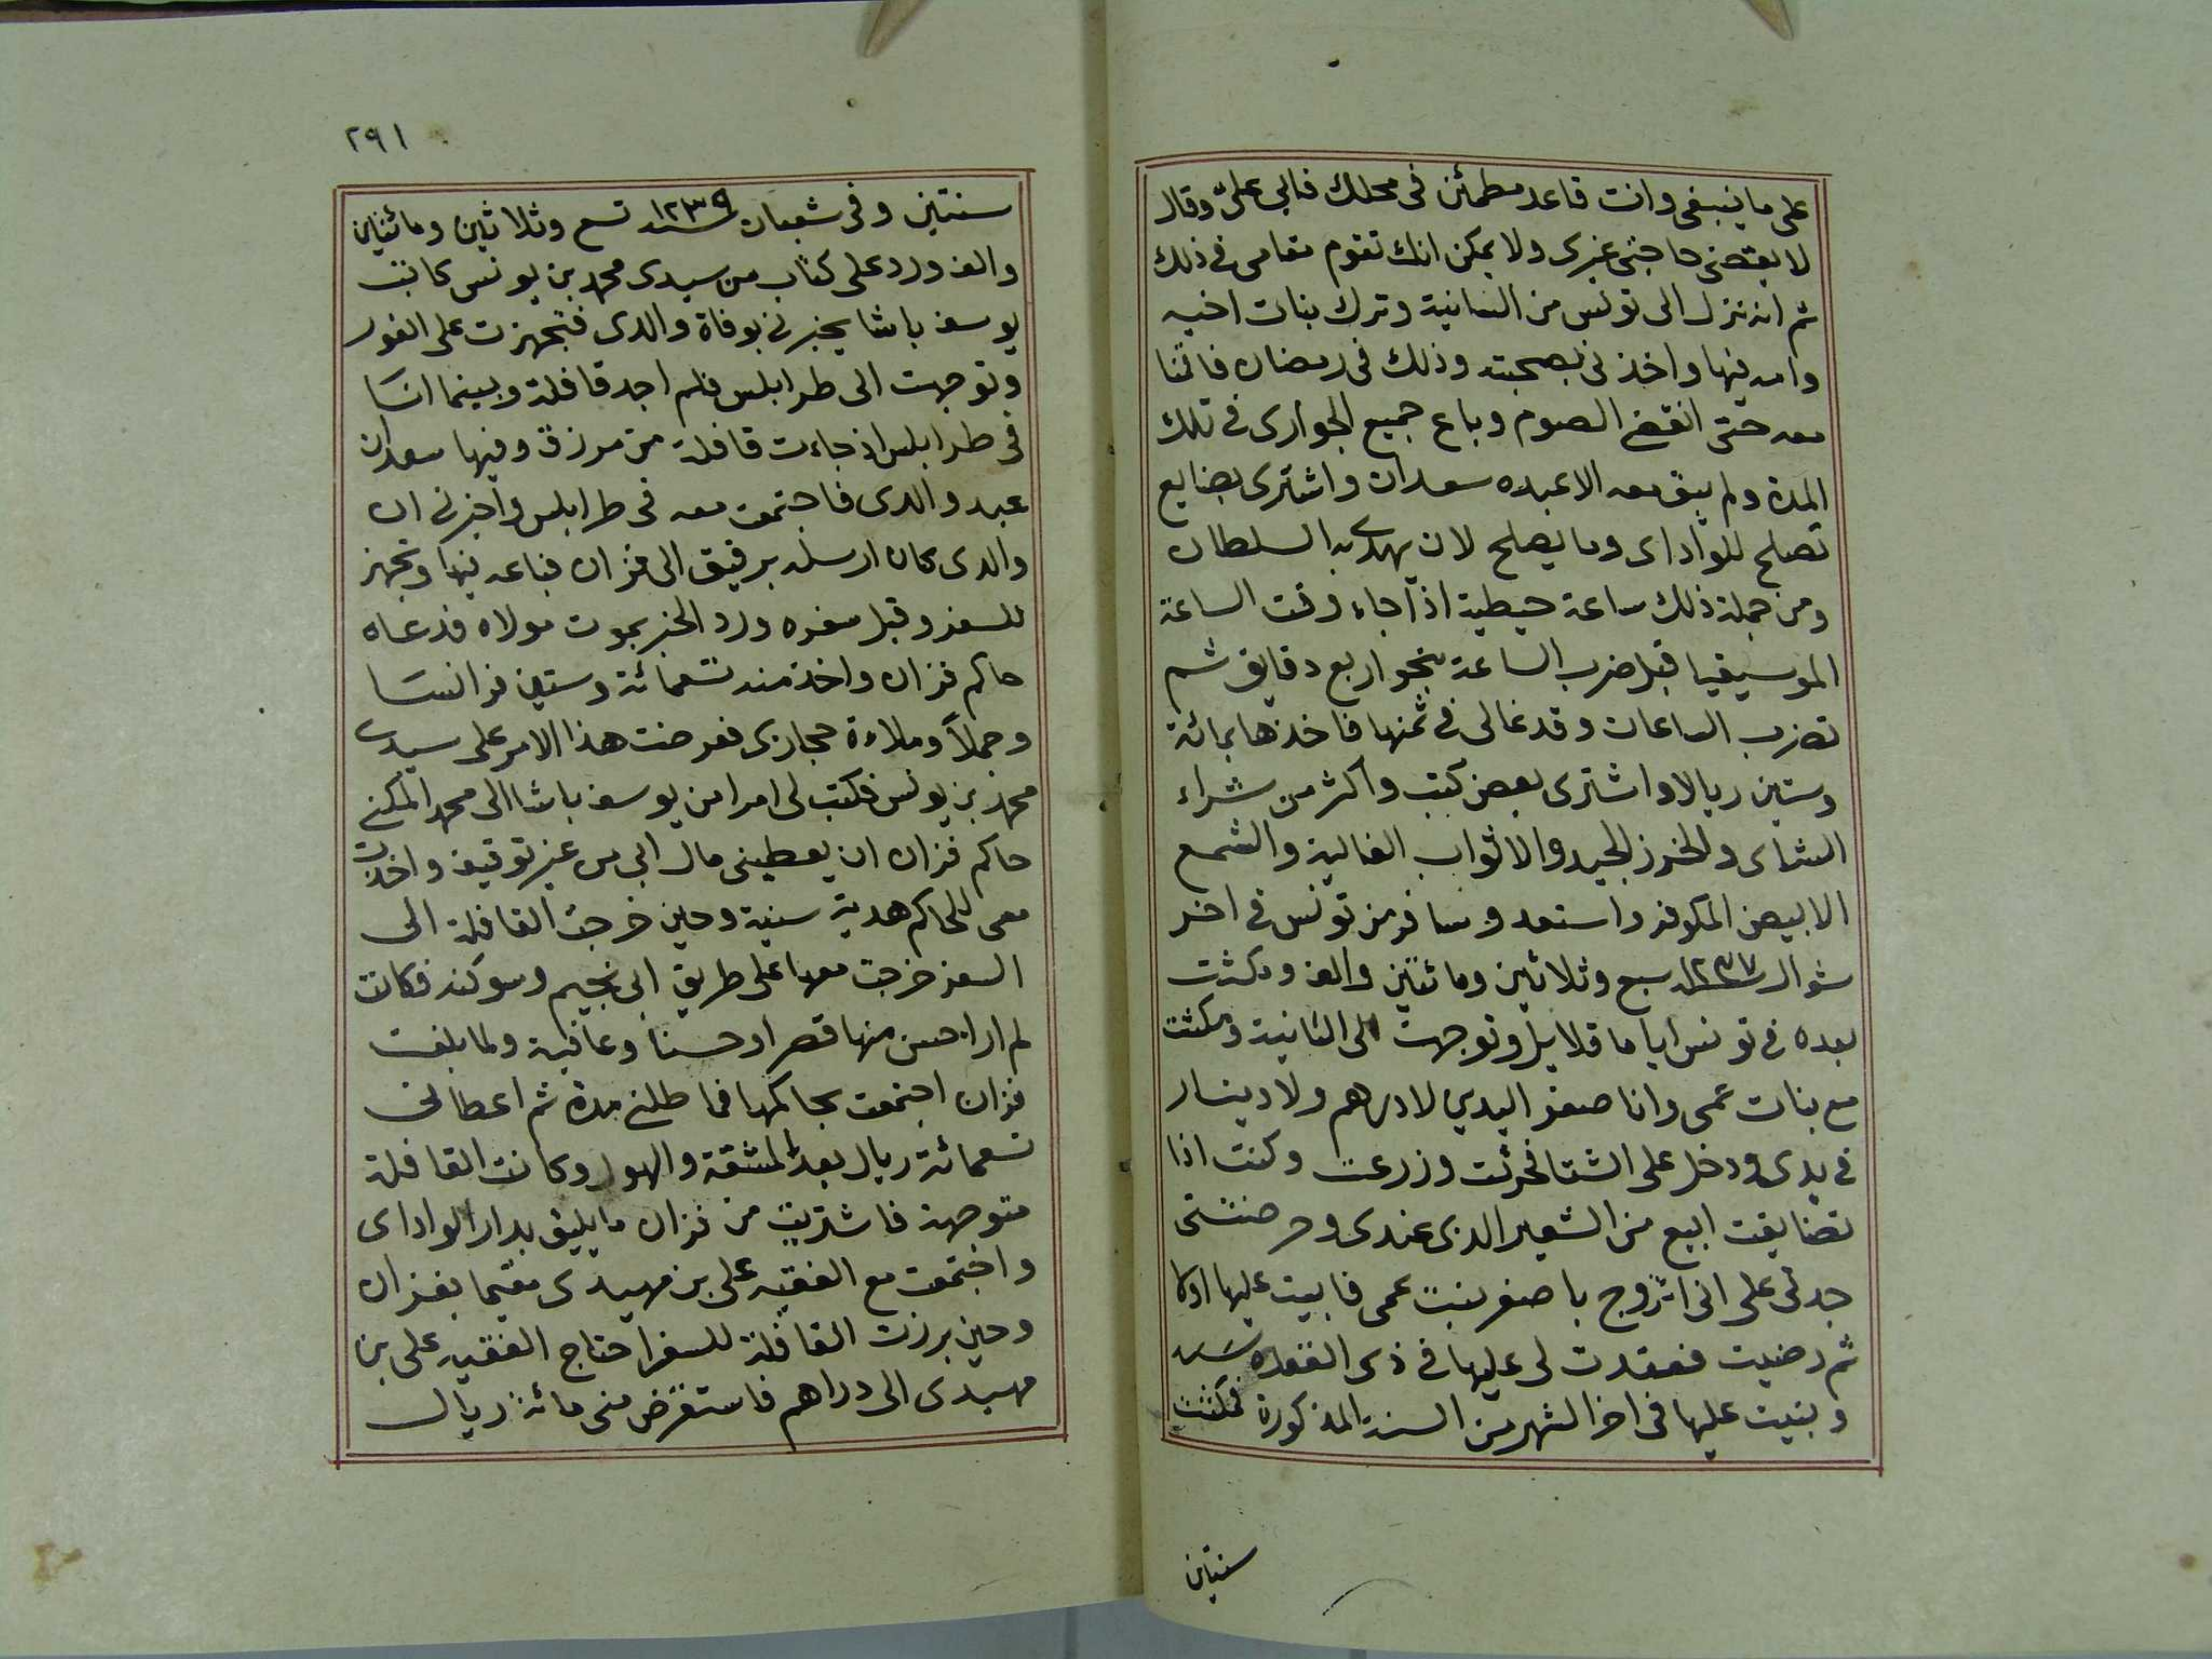 على ما ينبغى وانت قاعد مطمئن فى محلك فابى علىّ وقال
لا يقضى حاجتى غيرى ولا يمكن انك تقوم مقامى فى ذلك
ثم انه نزل الى تونس من السانية وترك بنات اخيه
وامه فيها واخذنى بصحبته وذلك فى رمضان فاقمنا
معه حتى انقضى الصوم وباع جميع الجوارى فى تلك
المدة ولم يبق معه الا عبده سعدان واشترى بضايع
تصلح للواداى وما يصلح لان يهدى به السلطان
ومن جملة ذلك ساعة حيطية اذا جاء وقت الساعة
الموسيقيا قبل ضرب الساعة بنحو اربع دقايق ثم
تضرب الساعات وقد غالى فى ثمنها فاخذها بمائة
وستين ريالا واشترى بعض كتب واكثر من شراء
الشاى والخرز الجيد والاثواب الغالية والشمع
الابيض المكوفر واستعد وسافر من تونس فى اخر
شوال سنة ١٢٣٧ سبع وثلاثين ومائتين والف ومكثت
بعده فى تونس اياما قلايل وتوجهت الى السانية ومكثت
مع بنات عمى وانا صفر اليدين لا درهم ولا دينار
فى يدى ودخل على الشتا فحرثت وزرعت وكنت اذا
تضايقت ابيع من الشعير الذى عندى وحرضتنى
جدتى على انى اتزوج باصغر بنت عمى فابيت عليها اولا
ثم رضيت فعقدت لى عليها فى ذى القعدة سنة
وبنيت عليها فى اخر الشهر من السنة المذكورة فمكثت
سنتين
٢٩١
سنتين وفى شعبان سنة ١٢٣٩ تسع وثلاثين ومائتين
والف ورد على كتاب من سيدى محمد بن يونس كاتب
يوسف باشا يخبرنى بوفاة والدى فتجهزت على الفور
وتوجهت الى طرابلس فلم اجد قافلة وبينما انا
فى طرابلس اذ جاءت قافلة من مرزق وفيها سعدان
عبد والدى فاجتمعت معه فى طرابلس واخبرنى ان
والدى كان ارسله برقيق الى فزان فباعه فيها وتجهز
للسفر وقبل سفره ورد الخبر بموت مولاه فدعاه
حاكم فزان واخذ منه تسعمائة وستين فرانسا
وجملاً وملاءة حجازى فعرضت هذا الامر على سيدى
محمد بن يونس فكتب لى امرا من يوسف باشا الى محمد المكنى
حاكم فزان ان يعطينى مال ابى من غير توقيف واخذت
معى للحاكم هدية سنية وحين خرجت القافلة الى
السفر خرجت معها على طريق ابى نجيم وسوكنه فكانت
لم ار احسن منها قصرا وحسنا وعافية ولما بلغت
فزان اجتمعت بحاكمها فماطلنى مدة ثم اعطانى
تسعمائة ريال بعد المشقة والهول وكانت القافلة
متوجهة فاشتريت من فزان ما يليق بدار الواداى
واجتمعت مع الفقيه على بن مهيدى مقيما بفزان
وحين برزت القافلة للسفر احتاج الفقيه على بن
مهيدى الى دراهم فاستقرض منى مائة ريال